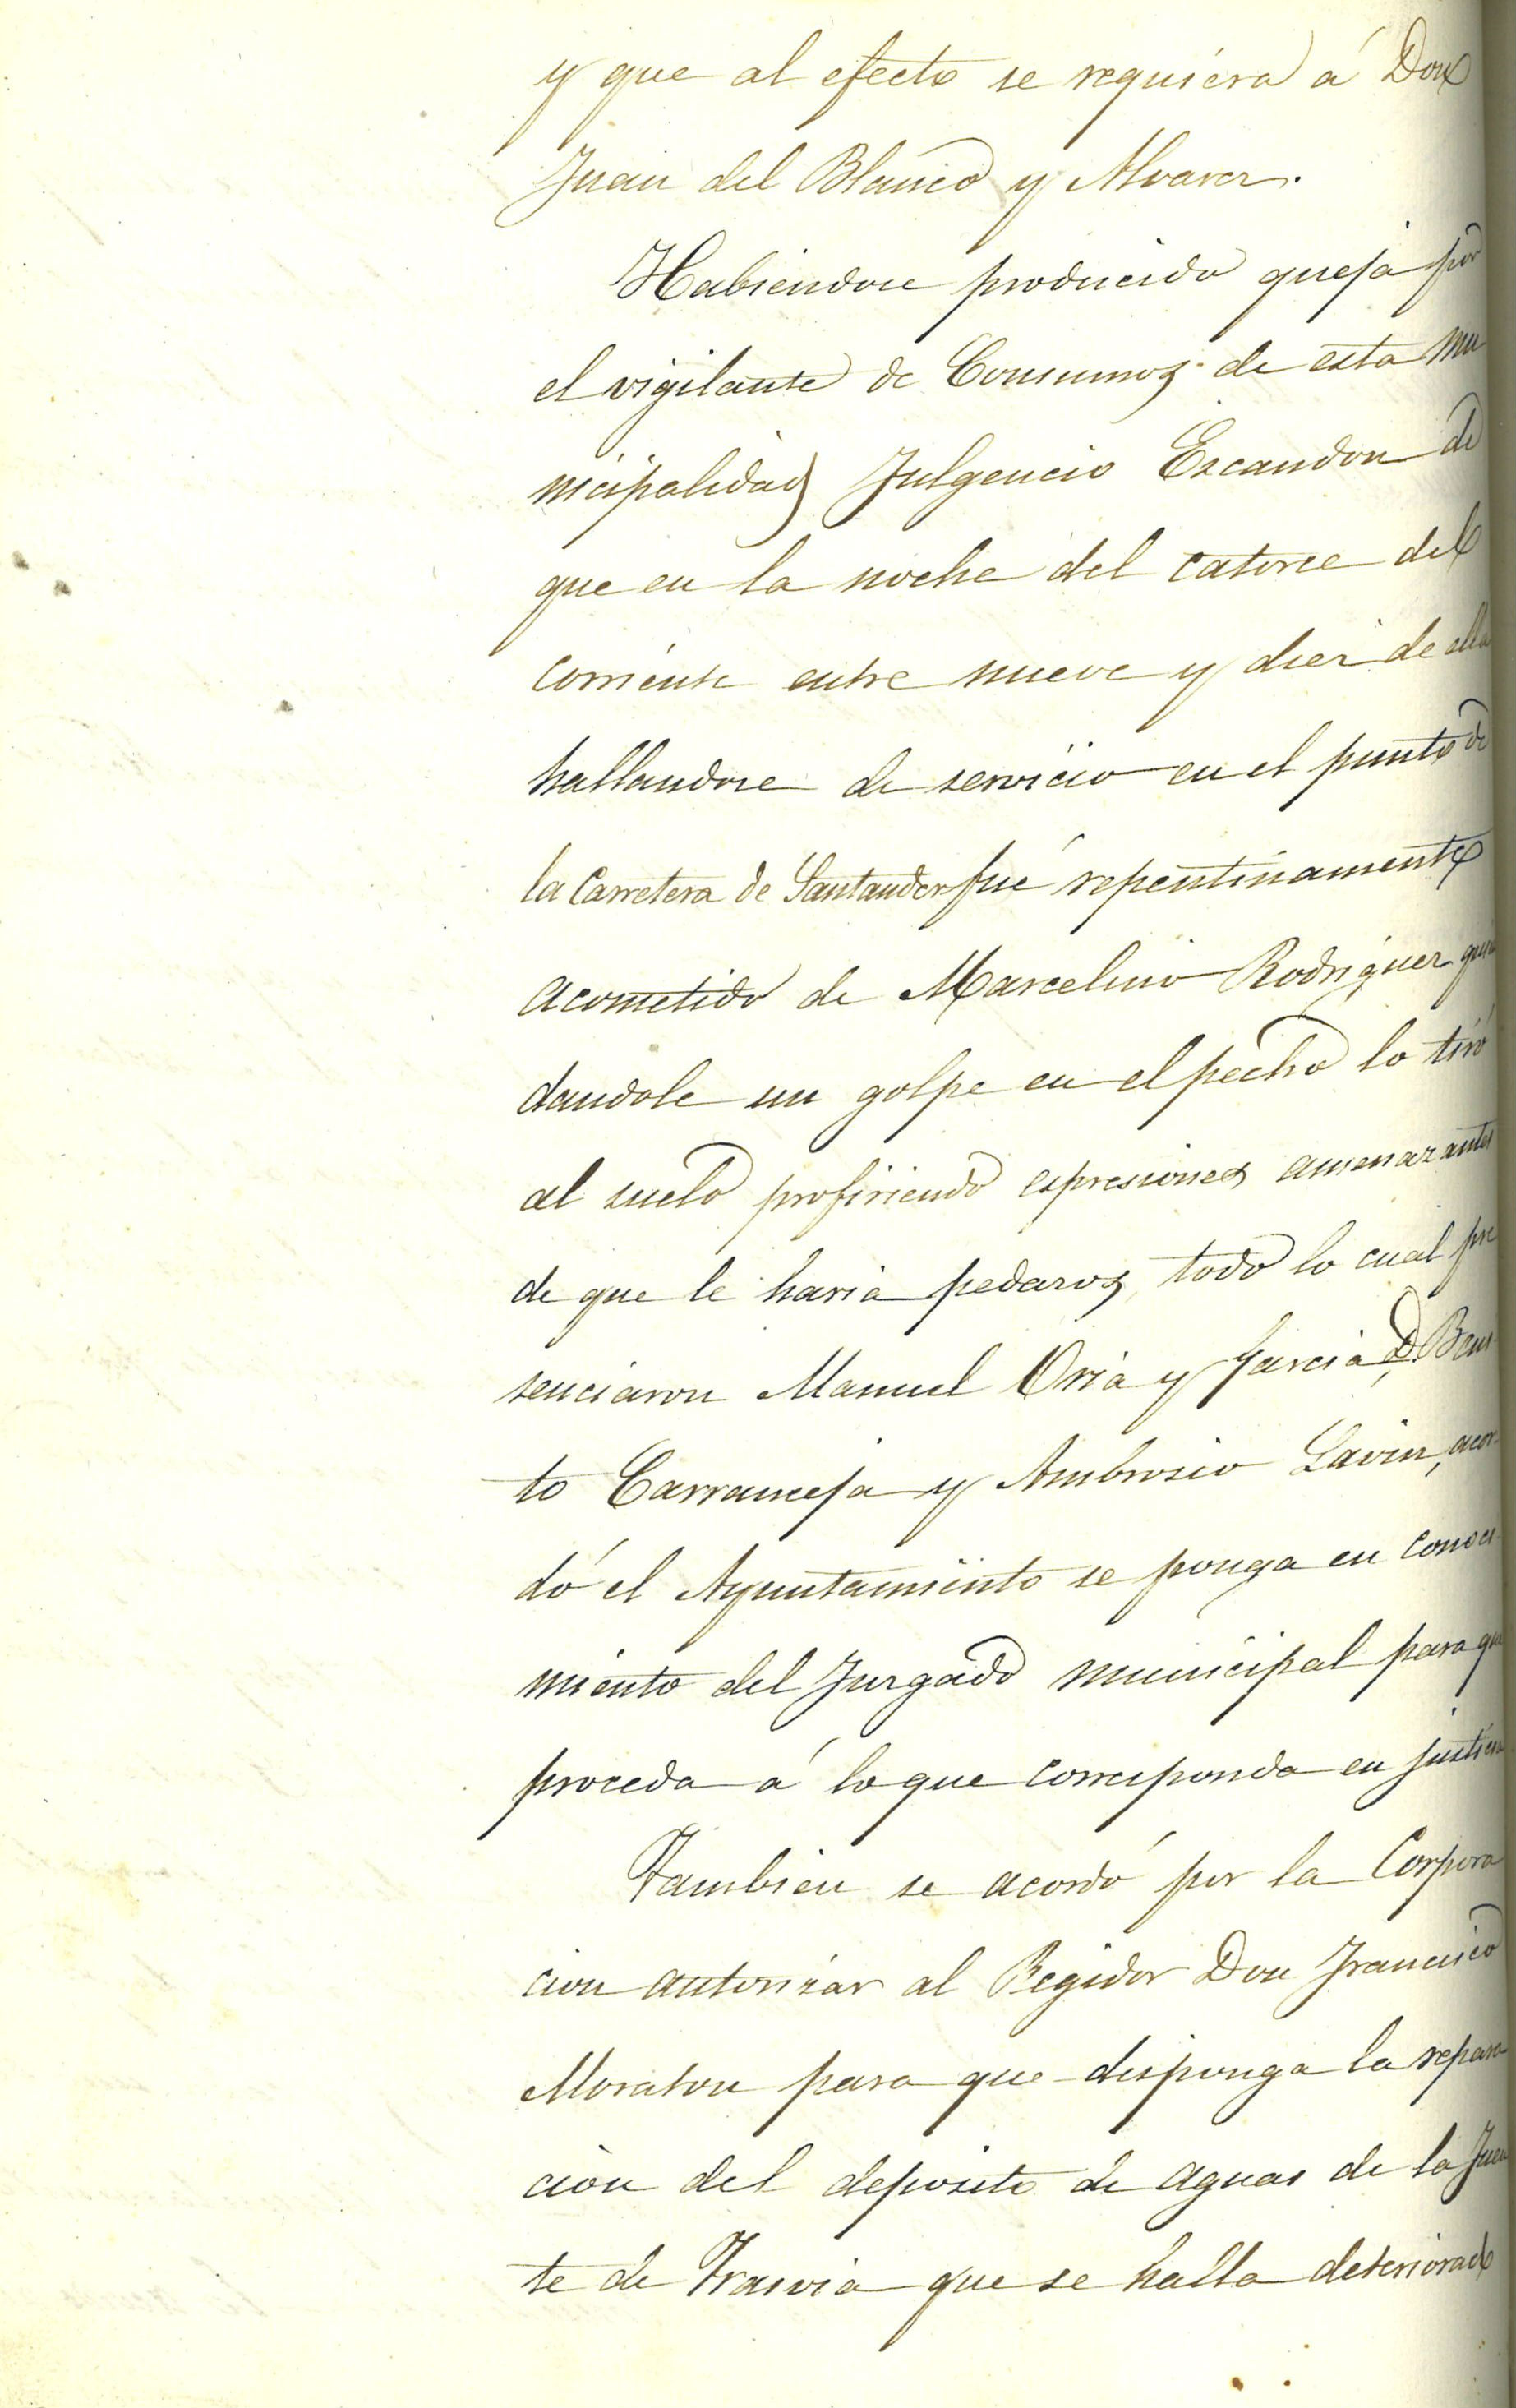 y que al efecto se requiera á Don
Juan del Blanco y Alvarez.
Habiendose producido queja por
el vigilante de Consumos de esta mu
nicipalidad Fulgencio Escandon de
que en la noche del catorce del
corriente entre nueve y diez de ella
hallandose de servicio en el punto de
la Carretera de Santander fué repentinamente
acometido de Marcelino Rodriguez quien
dandole un golpe en el pecho lo tiró
al suelo profiriendo espresiones amenazantes
de que le haria pedazos, todo lo cual pre
senciaron Manuel Oria y Garcia, D. Beni
to Carranceja y Ambrosio Lavin, acor-
dó el Ayuntamiento se ponga en conoci-
miento del Juzgado municipal para que
proceda á lo que corresponda en justicia
Tambien se acordó por la Corpora
cion autorizar al Regidor Don Francisco
Moraton para que disponga la repara
ción del deposito de aguas de la Fuen
te de Trasvia que se halla deteriorado